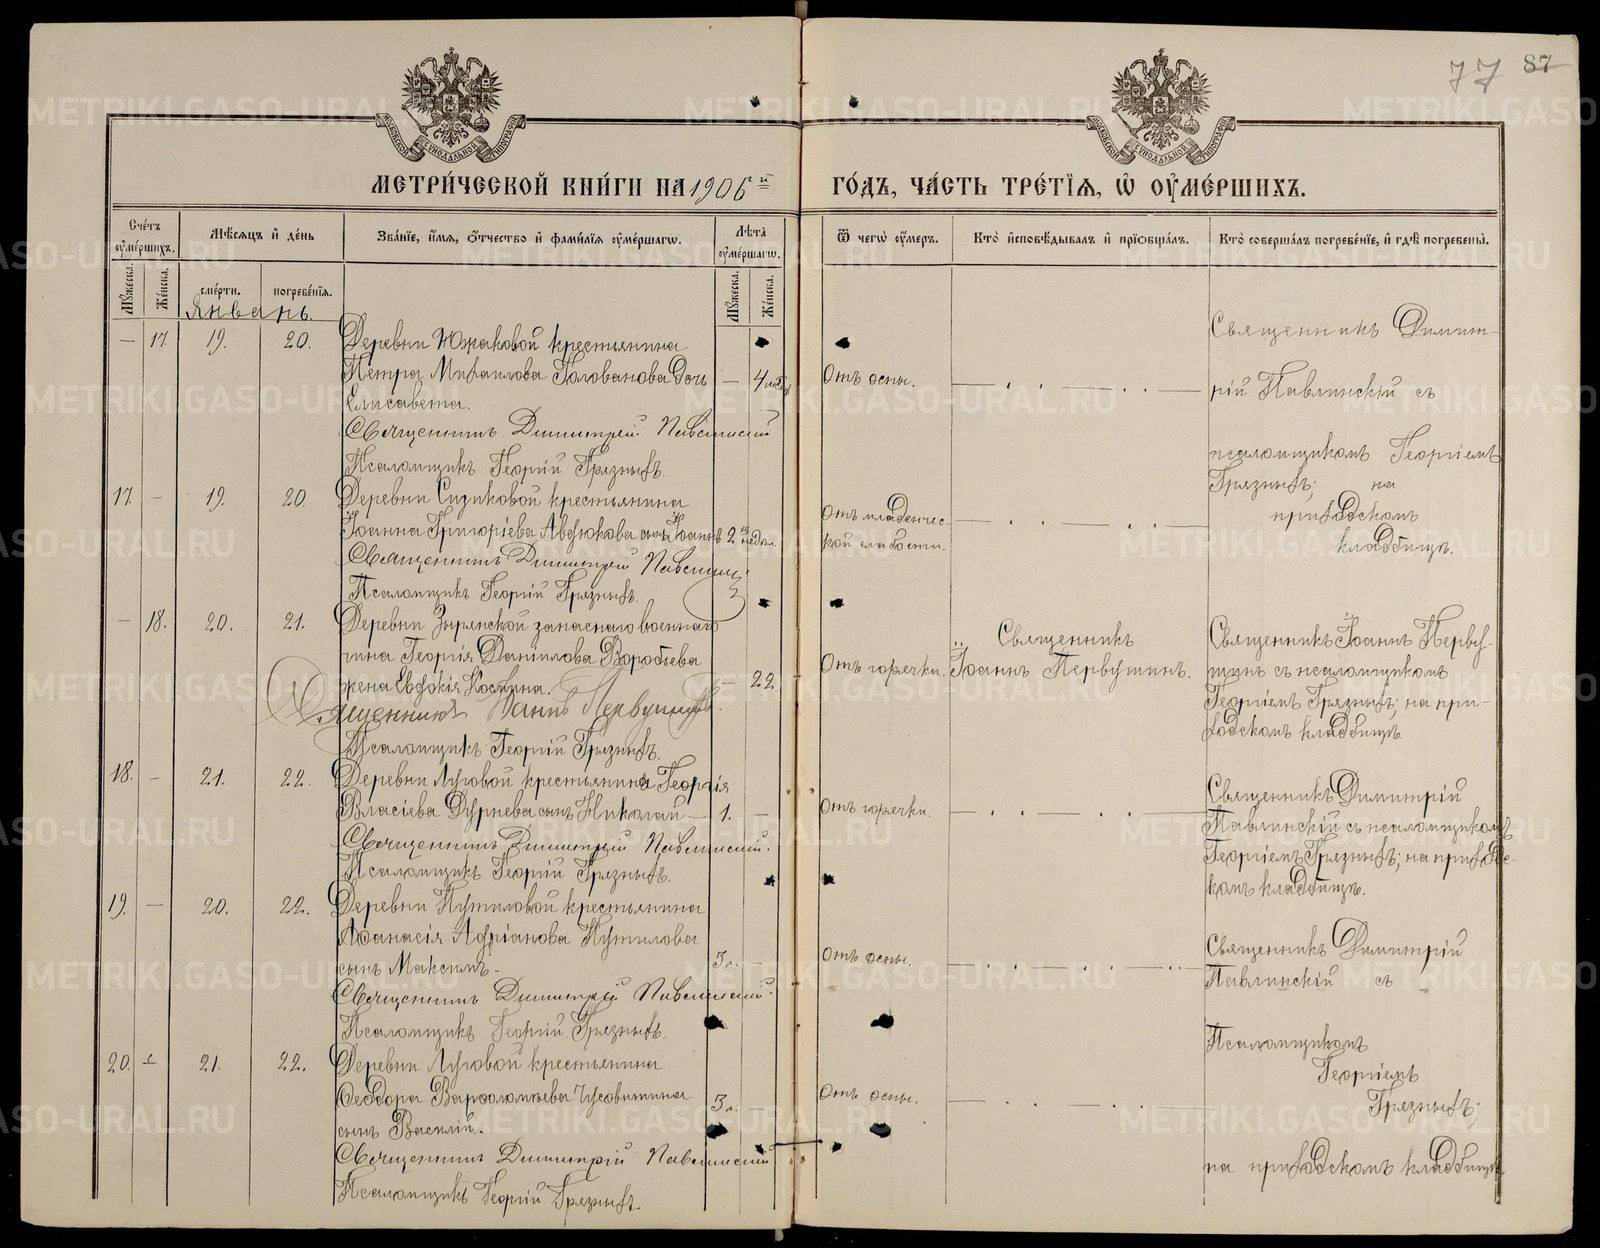 77 87
МОСКОВСКОЙ СѴНОДАЛЬНОЙ ТИПОГРАФІИ
МОСКОВСКОЙ СѴНОДАЛЬНОЙ ТИПОГРАФІИ
МЕТРИ́ЧЕСКОЙ КНИ́ГИ НА 1906й
ГО́ДЪ, ЧА́СТЬ ТРЕ́ТІѦ, Ѡ҆ ОУ҆МЕ́РШИХЪ.
Сче́тъ оу҆ме́ршихъ.
Мѣ́сѧцъ и҆ де́нь
Зва́ніе, и҆́мѧ, ѻ҆́тчество и҆ фами́лїѧ оу҆ме́ршагѡ.
Лѣ́та оу҆ме́ршагѡ.
Ѿ чегѡ̀ оу҆́меръ.
Кто̀ и҆сповѣ́дывалъ и҆ прїѡбща́лъ.
Кто̀ соверша́лъ погребе́нїе, и҆ гдѣ̀ погребены̀.
Мꙋ́жеска. Же́нска. сме́рти. погребе́нїѧ. Мꙋ́жеска. Же́нска.
Январь.
— 17. 19. 20. Деревни Южаковой крестьянина
Петра Михаилова Голованова дочь — 4
Елисавета.
Священникъ Димитрий Павлинский
Псаломщикъ Георгій Грязныхъ.
Отъ оспы.
Священникъ Димит-
рій Павлинскій съ
псаломщикомъ Георгіемъ
Грязныхъ; на
приходскомъ
кладбищѣ.
17 — 19. 20. Деревни Сизиковой крестьянина
Іоанна Григоріева Авдюкова сынъ Іоаннъ 2 недѣл.
Священникъ Димитрий Павлинский
Псаломщикъ Георгій Грязныхъ.
Отъ младенчес-
кой слабости.
— 18. 20. 21. Деревни Зырянской запаснаго военнаго
чина Георгія Даніилова Воробьева
жена Евдокія Космина. — 22
Священникъ Іоаннъ Первушинъ.
Псаломщикъ Георгій Грязныхъ.
Отъ горячки.
Священникъ
Іоаннъ Первушинъ.
Священникъ Іоаннъ Перву-
шинъ съ псаломщикомъ
Георгіемъ Грязныхъ; на при-
ходскомъ кладбищѣ.
18. — 21. 22. Деревни Луговой крестьянина Георгія
Власіева Дурнева сынъ Николай — 1. —
Священникъ Димитрий Павлинский.
Псаломщикъ Георгій Грязныхъ.
Отъ горячки.
Священникъ Димитрій
Павлинскій съ псаломщикомъ
Георгіемъ Грязныхъ; на приходс-
комъ кладбищѣ.
19. — 20. 22. Деревни Путиловой крестьянина
Аѳанасія Адріанова Путилова
сынъ Максимъ. 3г. —
Священникъ Димитрий Павлинский.
Псаломщикъ Георгій Грязныхъ.
Отъ оспы.
Священникъ Димитрій
Павлинскій съ
Псаломщикомъ
Георгіемъ
Грязныхъ;
на приходскомъ кладбищѣ
20. — 21. 22. Деревни Луговой крестьянина
Ѳеодора Варѳоломѣева Чусовитина
сынъ Василій. 3г. —
Священникъ Димитрій Павлинский
Псаломщикъ Георгій Грязныхъ.
Отъ оспы.
METRIKI.GASO-URAL.RU